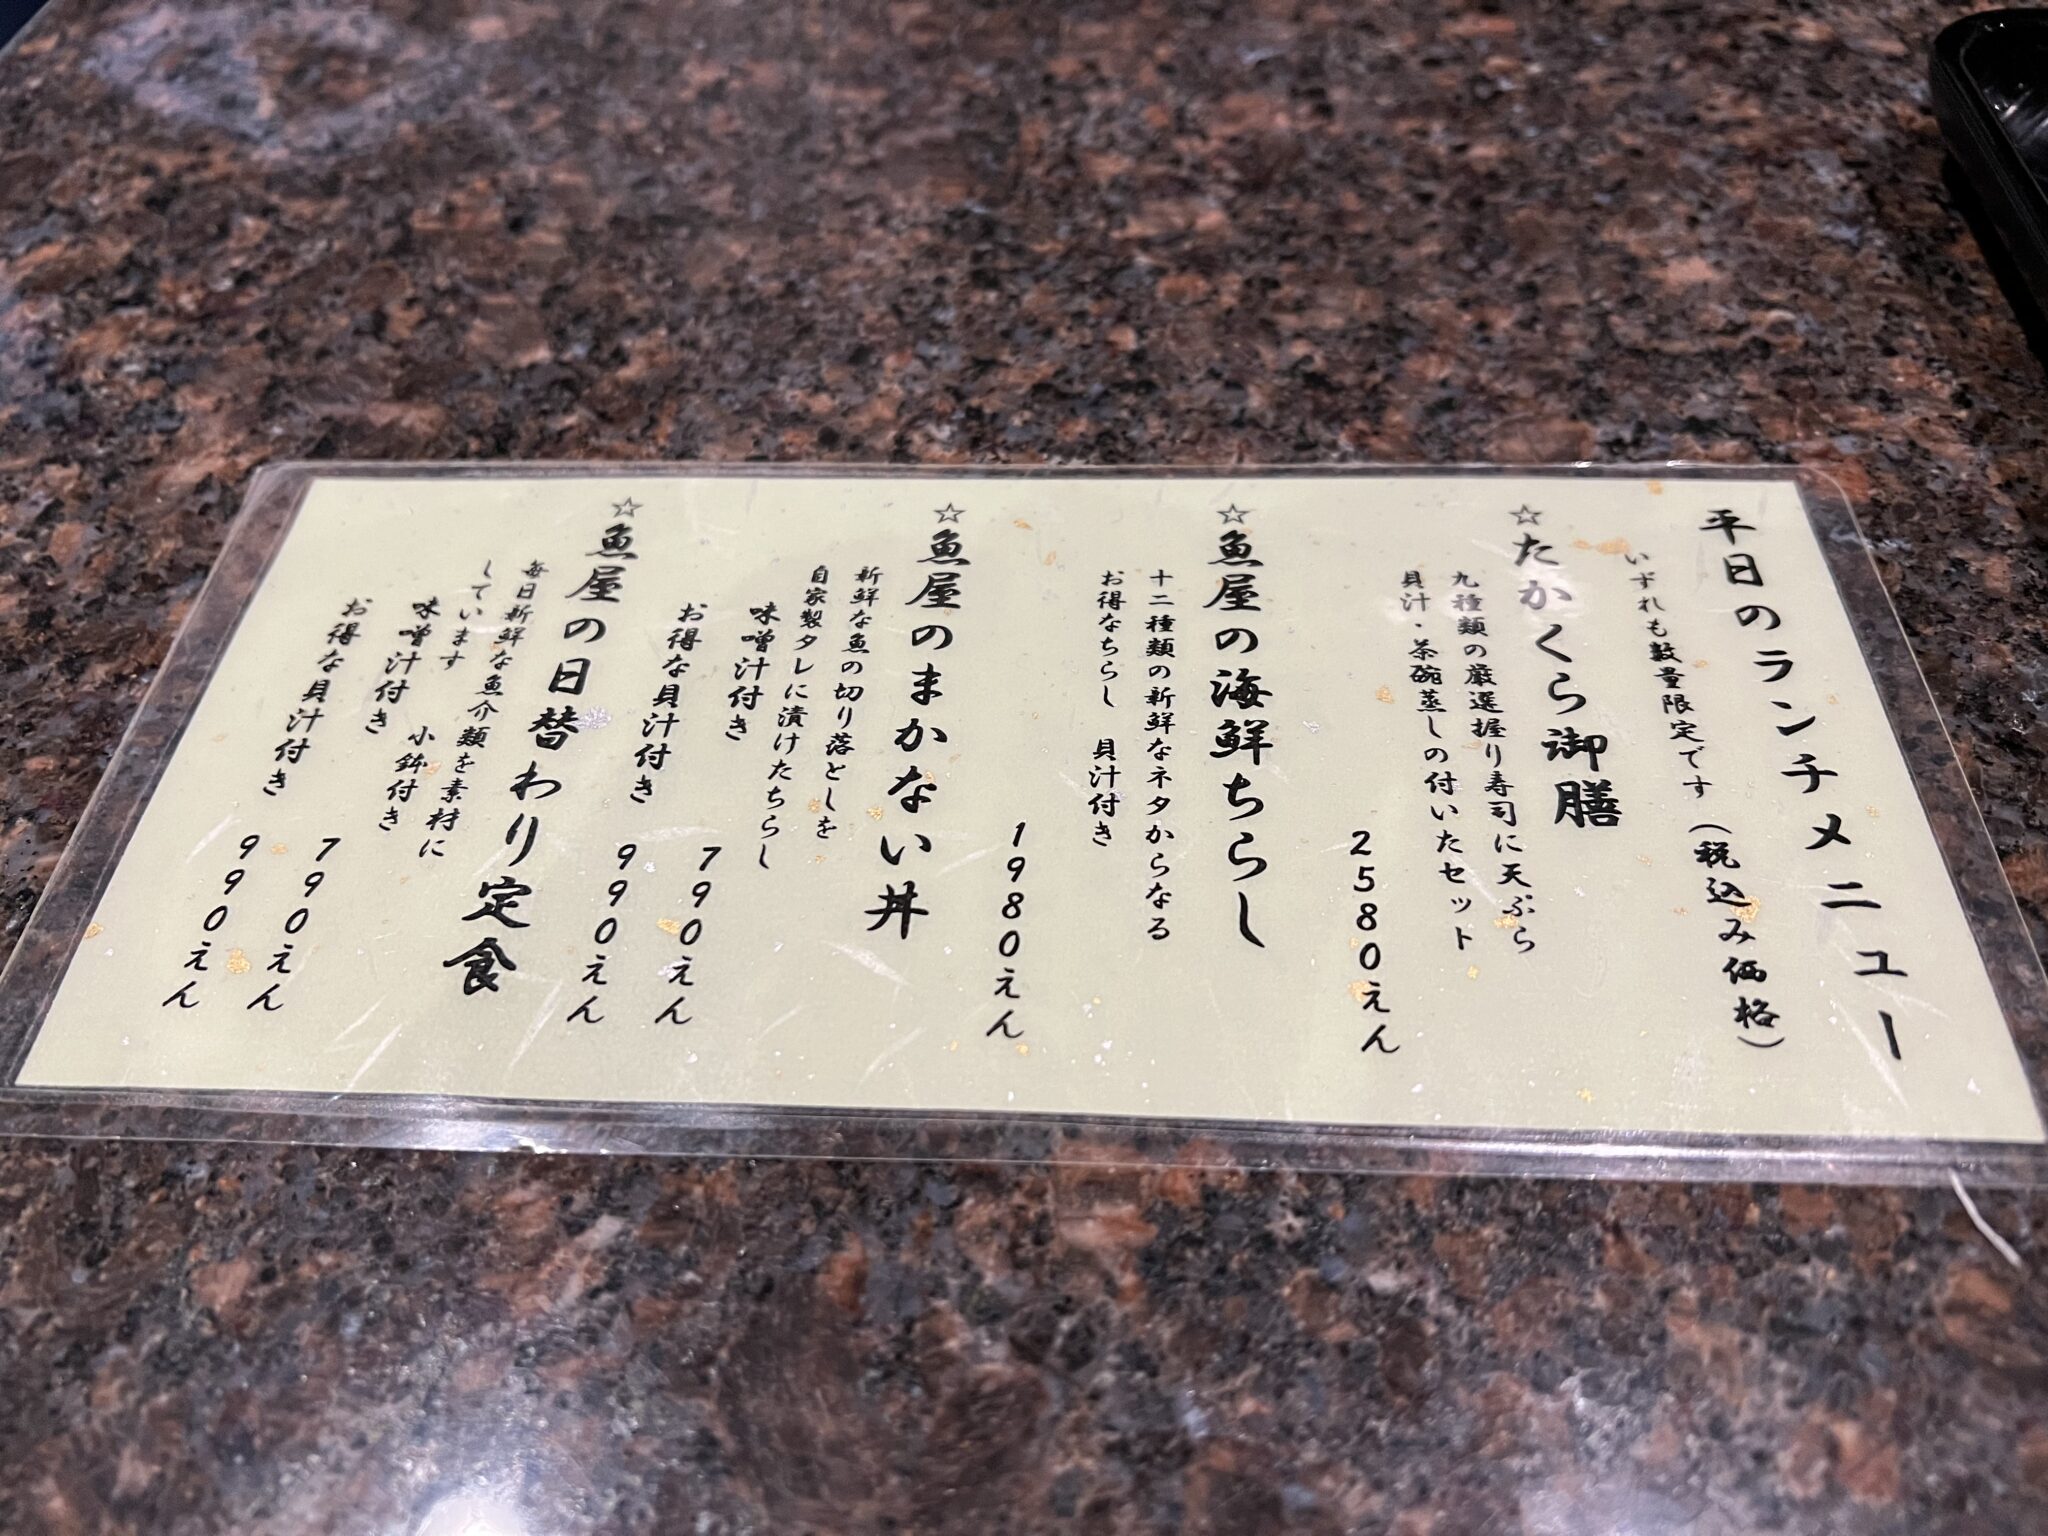 平日のランチメニュー
いずれも数量限定です(税込み価格)
☆たかくら御膳
九種類の厳選握り寿司に天ぷら
貝汁・茶碗蒸しの付いたセット
2580えん
☆魚屋の海鮮ちらし
十二種類の新鮮なネタからなる
お得なちらし 貝汁付き
1980えん
☆魚屋のまかない丼
新鮮な魚の切り落としを
自家製タレに漬けたちらし
味噌汁付き 790えん
お得な貝汁付き 990えん
☆魚屋の日替わり定食
毎日新鮮な魚介類を素材に
しています 小鉢付き
味噌汁付き 790えん
お得な貝汁付き 990えん